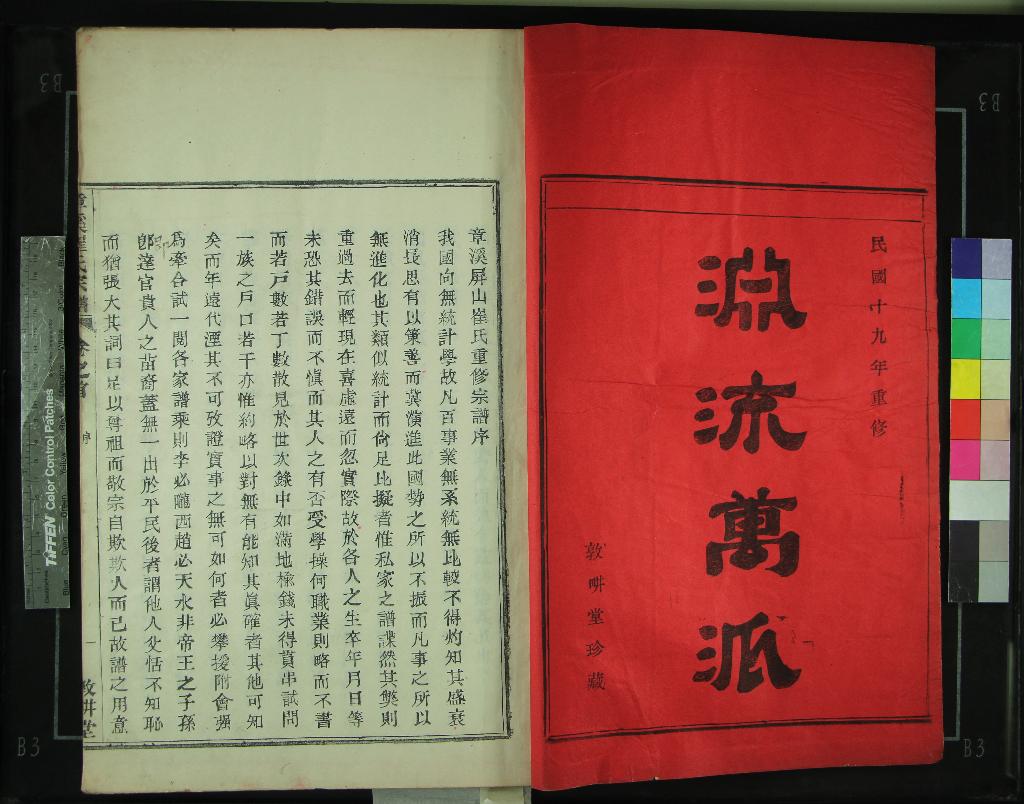 民國十九年重修
淵流萬派
敦畊堂珍藏
章溪屏山崔氏重修宗譜序
我國向無統計學故凡百事業無系統無比較不得灼知其盛衰
消長思有以策善而冀演進此國勢之所以不振而凡事之所以
無進化也其類似統計而尙足比擬者惟私家之譜諜然其獘則
重過去而輕現在喜虛遠而忽實際故於各人之生卒年月日等
未恐其錯誤而不愼而其人之有否受學操何職業則略而不書
而若戶數若丁數散見於世次錄中如滿地極錢未得貫串試問
一族之戶口若干亦惟約略以對無有能知其眞確者其他可知
矣而年遠代湮其不可攷證實事之無可如何者必攀援附會强
爲牽合試一閱各家譜乘則李必隴西趙必天水非帝王之子孫
卽達官貴人之苗裔蓋無一出於平民後者謂他人父恬不知恥
而猶張大其詞曰足以尊祖而敬宗自欺欺人而已故譜之用意
章溪崔氏宗譜 卷之首 序 一 敦畊堂
TIFFEN Color Control Patches
B3
B3
B3
B3